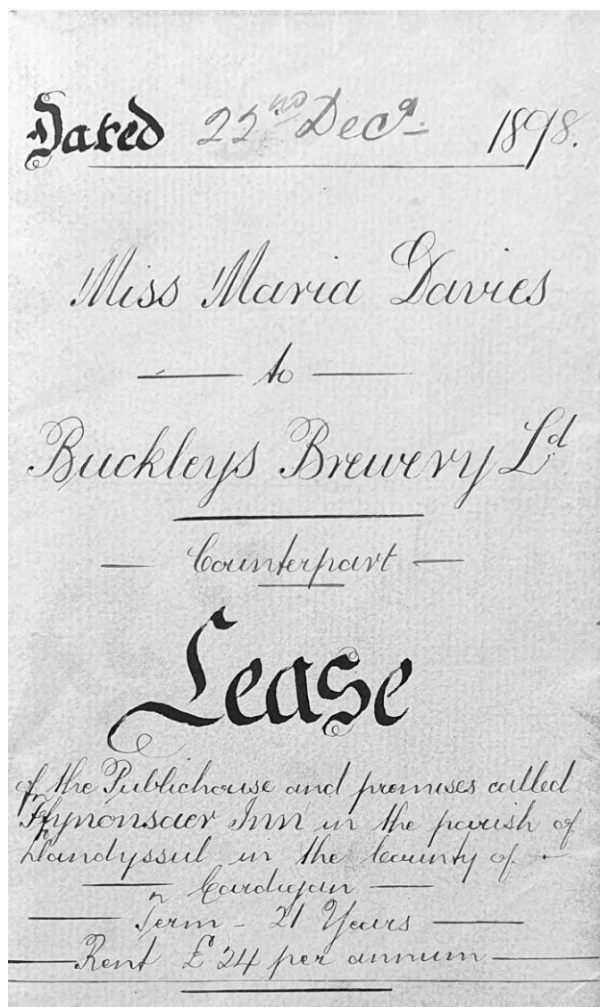 Dated 22nd Decr. 1898.
Miss Maria Davies
to
Buckleys Brewery Ld.
Counterpart
Lease
of the Publichouse and premises called
Ffynonsaer Inn in the parish of
Llandyssul in the County of
Cardigan
Term - 21 Years
Rent £24 per annum